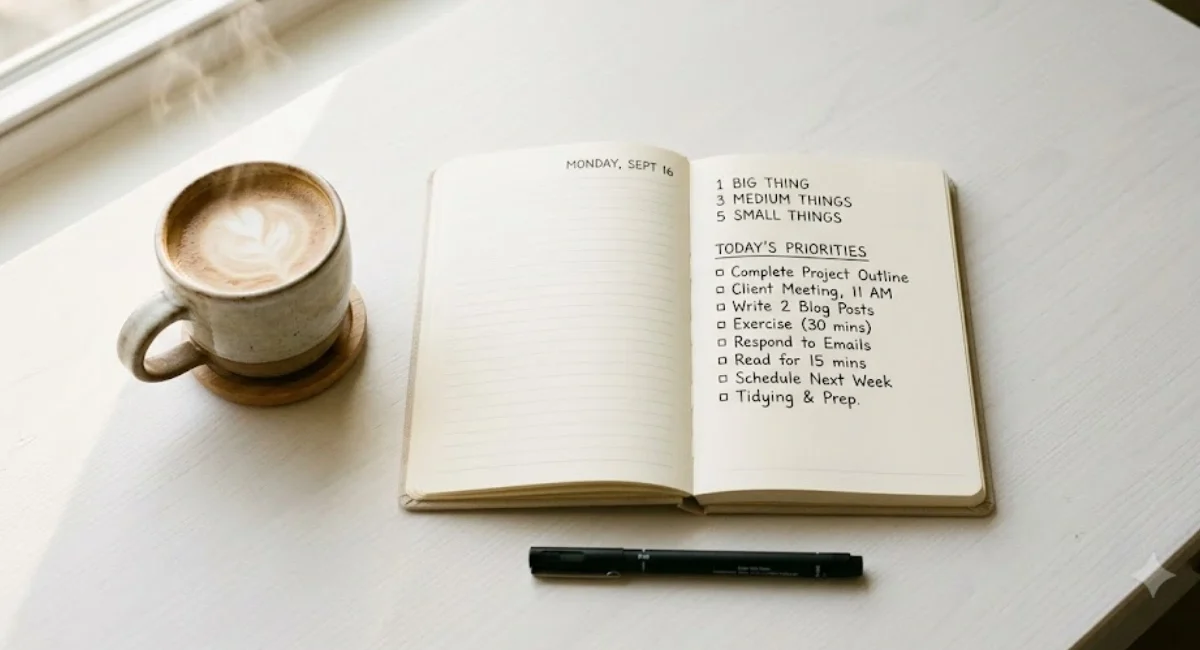 MONDAY, SEPT 16
1 BIG THING
3 MEDIUM THINGS
5 SMALL THINGS
TODAY'S PRIORITIES
Complete Project Outline
Client Meeting, 11 AM
Write 2 Blog Posts
Exercise (30 mins)
Respond to Emails
Read for 15 mins
Schedule Next Week
Tidying & Prep.